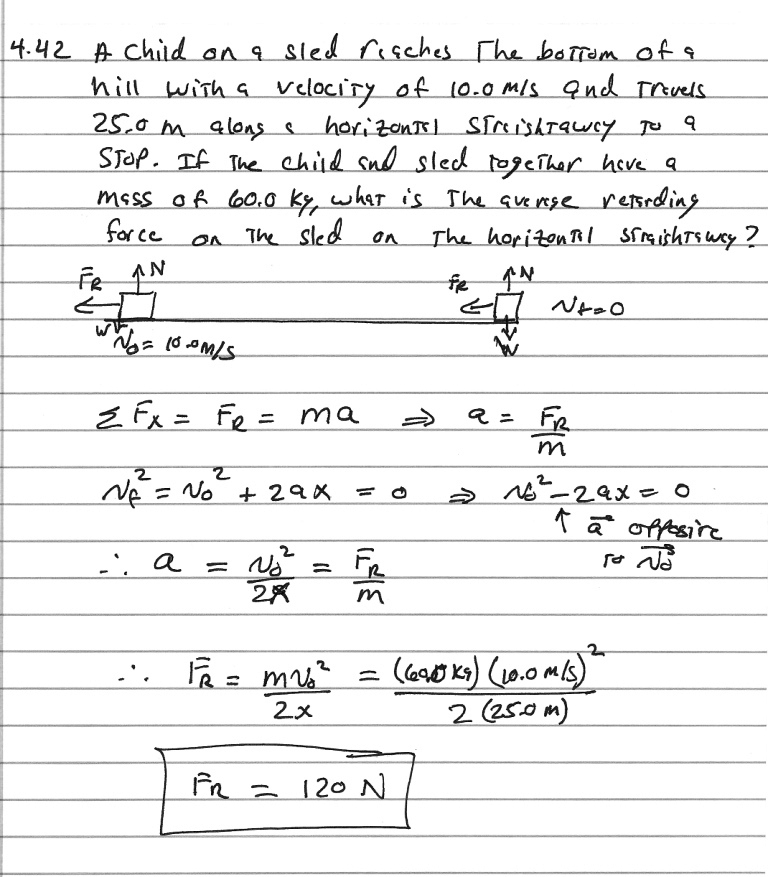 4.42 A child on a sled reaches The bottom of a
hill with a velocity of 10.0 m/s and Travels
25.0 m along a horizontal straightaway to a
stop. If the child and sled together have a
mass of 60.0 kg, what is the average retarding
force on the sled on the horizontal straightaway?
F̄R N F̄R N Vf=0
W V0 = 10.0 m/s W
ΣFx = F̄R = ma ⇒ a = F̄R/m
Vf² = V0² + 2ax = 0 ⇒ V0² - 2ax = 0
↑ a⃗ opposite
to V⃗0
∴ a = V0²/2x = F̄R/m
∴ F̄R = mV0²/2x = (60.0 kg)(10.0 m/s)²/2(25.0 m)
F̄R = 120 N